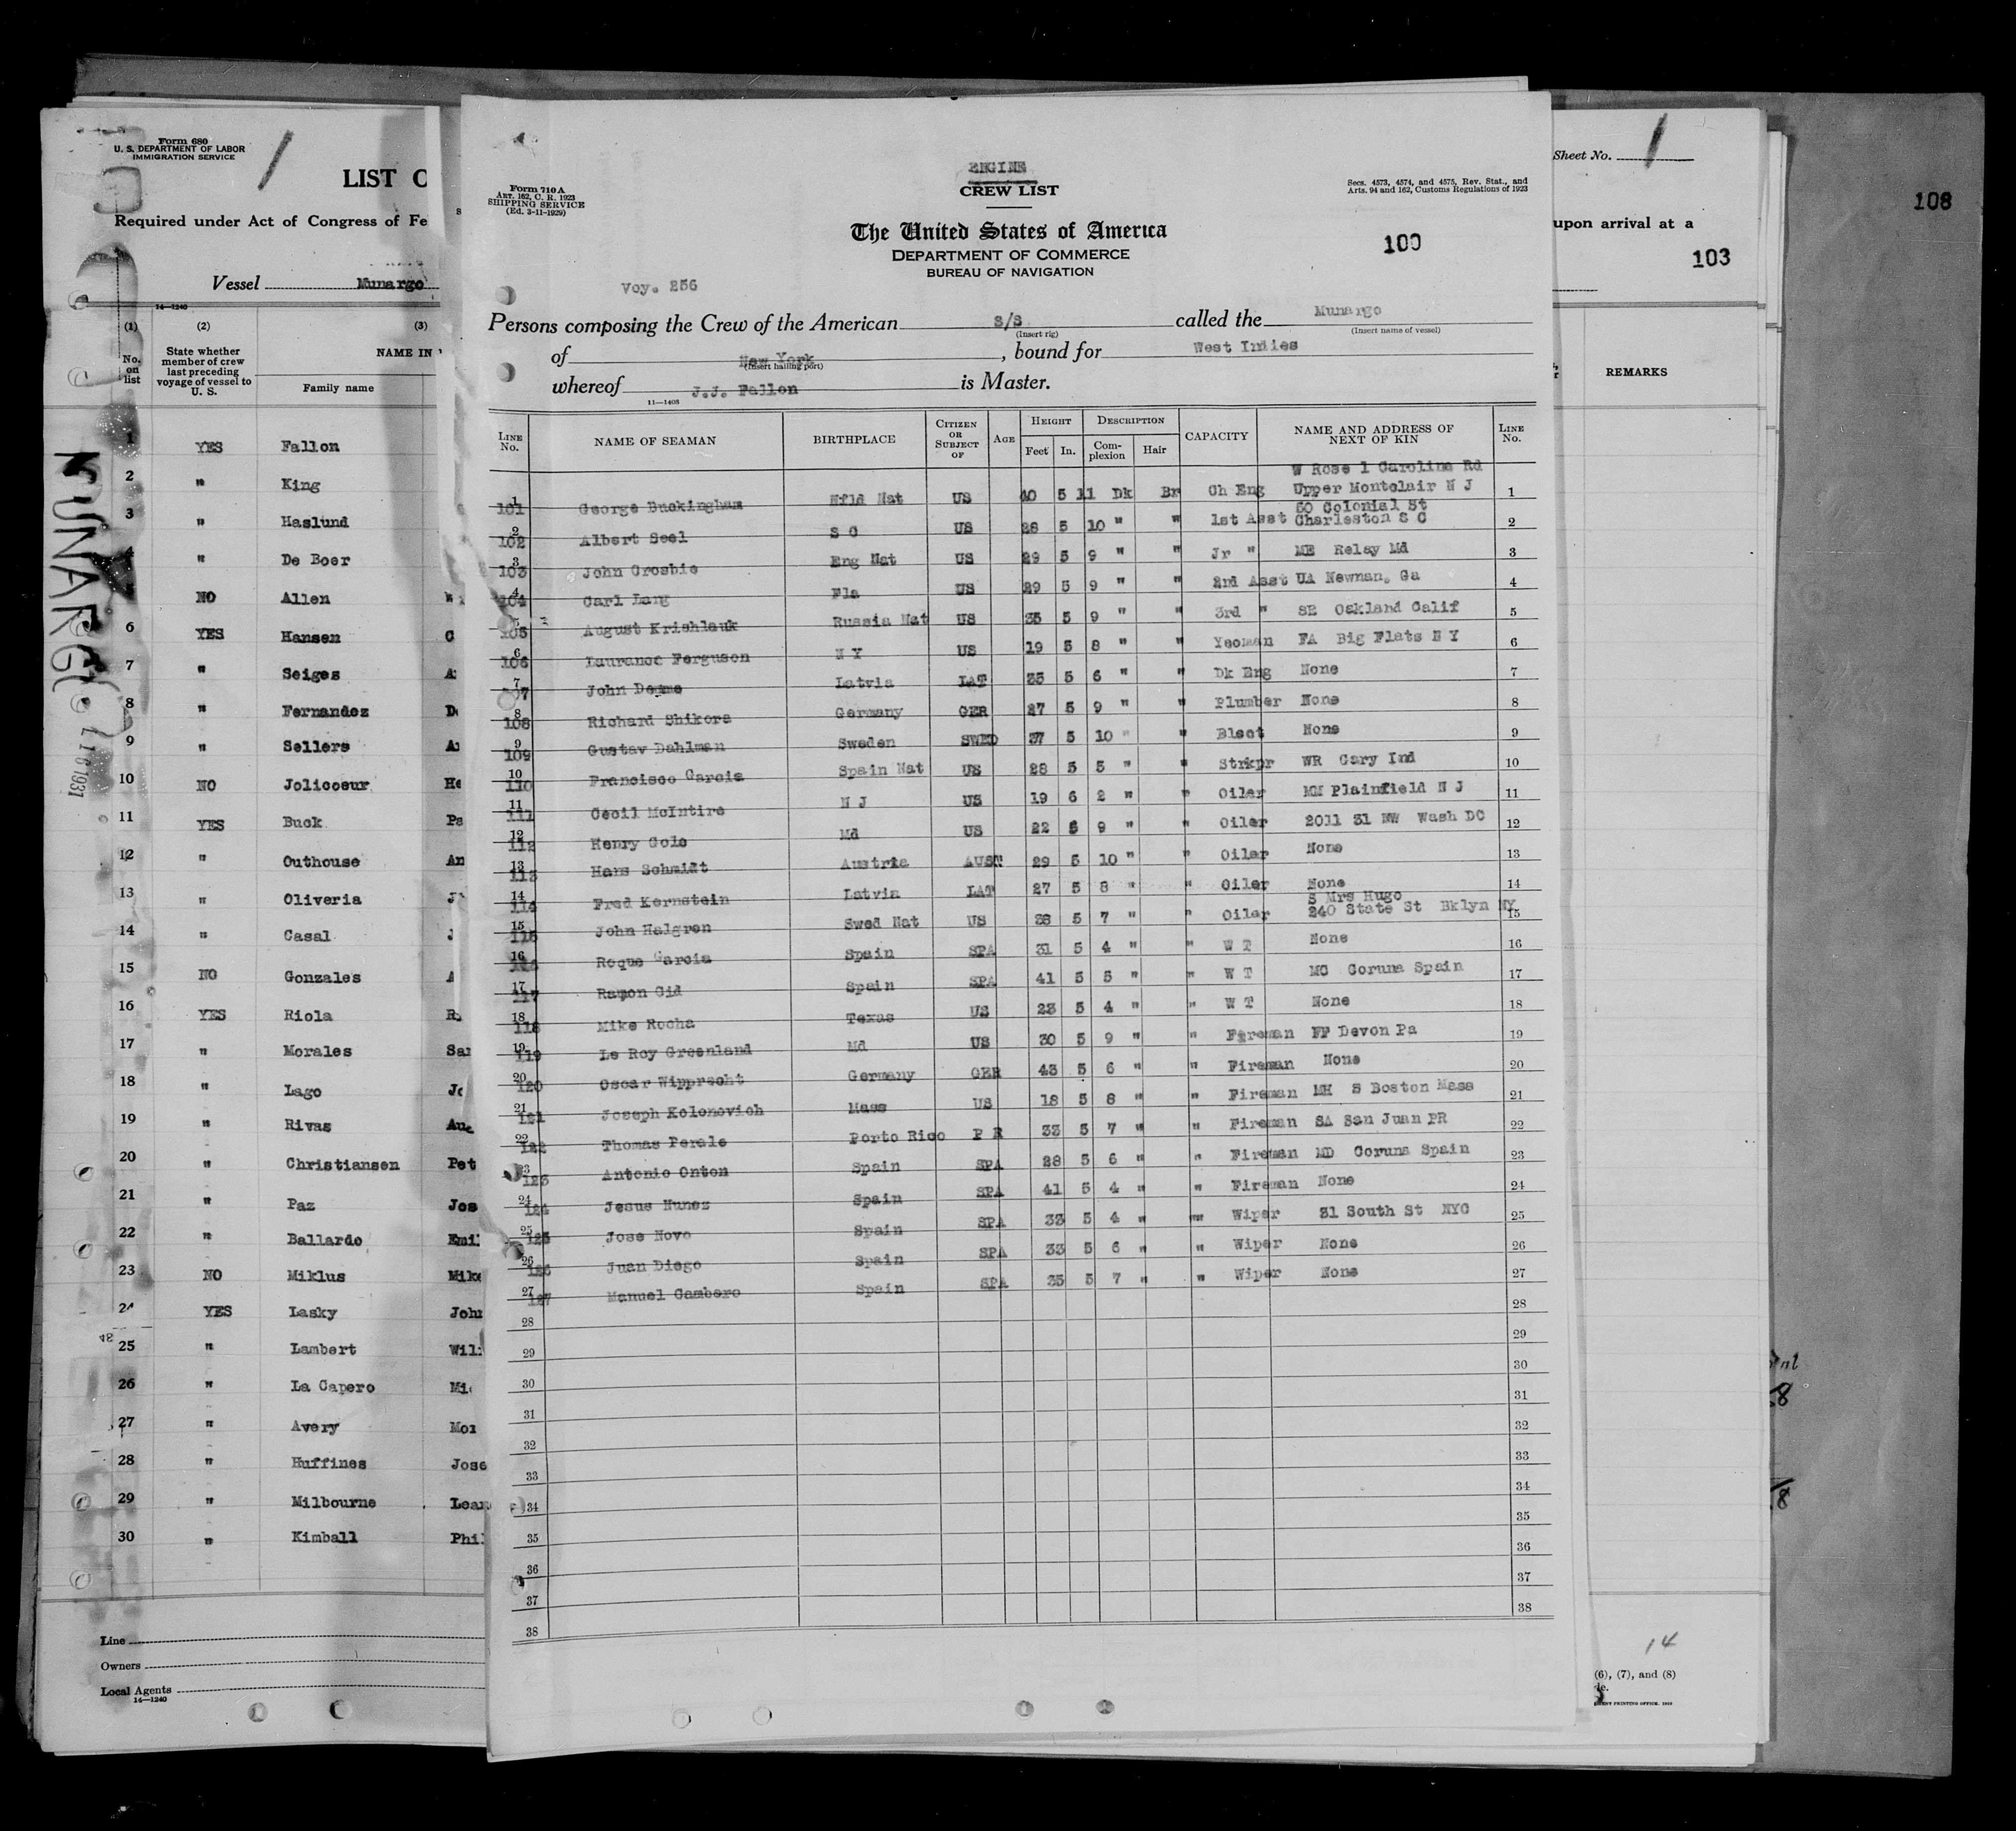 Form 680
U. S. DEPARTMENT OF LABOR
IMMIGRATION SERVICE
LIST O
Required under Act of Congress of Fe
Vessel Munargo
14—1240
(1) (2) (3)
No. on list
State whether member of crew last preceding voyage of vessel to U. S.
NAME IN
Family name
1 YES Fallon
2 " King
3 " Haslund
4 " De Boer
NO Allen W
6 YES Hansen C
7 " Seiges
8 " Fernandez
9 " Sellers
10 NO Jolicoeur He
11 YES Buck
12 " Outhouse An
13 " Oliveria J
14 " Casal J
15 NO Gonzales A
16 YES Riola R
17 " Morales Sa
18 " Lago Jo
19 " Rivas
20 " Christiansen Pet
21 " Paz Jos
22 " Ballardo Emi
23 NO Miklus Mike
24 YES Lasky John
25 " Lambert Wil
26 " La Capero Mi
27 " Avery
28 " Huffines Jose
29 " Milbourne Lean
30 " Kimball Phi
Line
Owners
Local Agents
14—1240
MUNARGO
1931
ENGINE
CREW LIST
Form 710 A
ART. 162, C. R. 1923
SHIPPING SERVICE
(Ed. 3-11-1929)
Secs. 4573, 4574, and 4575, Rev. Stat., and
Arts. 94 and 162, Customs Regulations of 1923
The United States of America
DEPARTMENT OF COMMERCE
BUREAU OF NAVIGATION
100
Voy. 256
Persons composing the Crew of the American S/S called the Munargo
(Insert rig) (Insert name of vessel)
of New York, bound for West Indies
(Insert hailing port)
whereof J.J. Fallon is Master.
11—1408
LINE No. NAME OF SEAMAN BIRTHPLACE CITIZEN OR SUBJECT OF AGE HEIGHT Feet In. DESCRIPTION Complexion Hair CAPACITY NAME AND ADDRESS OF NEXT OF KIN LINE No.
W Rose 1 Carolina Rd
1 101 George Buckingham Nfld Nat US 40 5 11 Dk Br Ch Eng Upper Montclair N J 1
50 Colonial St
2 102 Albert Seel S C US 28 5 10 " " 1st Asst Charleston S C 2
3 103 John Crosbie Eng Nat US 29 5 9 " " Jr " ME Relay Md 3
4 104 Carl Lang Fla US 29 5 9 " " 2nd Asst UA Newnan, Ga 4
5 105 August Krishlauk Russia Nat US 35 5 9 " " 3rd " SE Oakland Calif 5
6 106 Laurance Ferguson N Y US 19 5 8 " " Yeoman FA Big Flats N Y 6
7 107 John Deqme Latvia LAT 35 5 6 " " Dk Eng None 7
8 108 Richard Shikora Germany GER 27 5 9 " " Plumber None 8
9 109 Gustav Dahlman Sweden SWED 37 5 10 " " Elect None 9
10 110 Francisco Garcia Spain Nat US 28 5 5 " " Strkpr WR Gary Ind 10
11 111 Cecil McIntire N J US 19 6 2 " " Oiler MM Plainfield N J 11
12 112 Henry Cole Md US 22 5 9 " " Oiler 2011 31 NW Wash DC 12
13 113 Hans Schmidt Austria AUST 29 5 10 " " Oiler None 13
14 114 Fred Kernstein Latvia LAT 27 5 8 " " Oiler None 14
S Mrs Hugo
15 115 John Halgren Swed Nat US 38 5 7 " " Oiler 240 State St Bklyn NY 15
16 Roque Garcia Spain SPA 31 5 4 " " W T None 16
17 117 Ramon Cid Spain SPA 41 5 5 " " W T MC Coruna Spain 17
18 118 Mike Rocha Texas US 23 5 4 " " W T None 18
19 119 Le Roy Greenland Md US 30 5 9 " " Fireman FF Devon Pa 19
20 120 Oscar Wipprecht Germany GER 43 5 6 " " Fireman None 20
21 121 Joseph Kolonovich Mass US 18 5 8 " " Fireman MK S Boston Mass 21
22 122 Thomas Perale Porto Rico P R 33 5 7 " " Fireman SA San Juan PR 22
23 123 Antonio Onton Spain SPA 28 5 6 " " Fireman MD Coruna Spain 23
24 124 Jesus Nunez Spain SPA 41 5 4 " " Fireman None 24
25 125 Jose Novo Spain SPA 33 5 4 " " Wiper 31 South St NYC 25
26 126 Juan Diego Spain SPA 33 5 6 " " Wiper None 26
27 127 Manuel Gambero Spain SPA 35 5 7 " " Wiper None 27
28 28
29 29
30 30
31 31
32 32
33 33
34 34
35 35
36 36
37 37
38 38
Sheet No. 1
upon arrival at a
103
108
REMARKS
14
(6), (7), and (8)